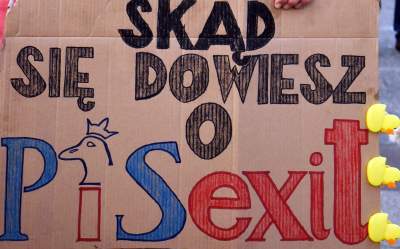 SKĄD
SIĘ DOWIESZ
O
PiSexit